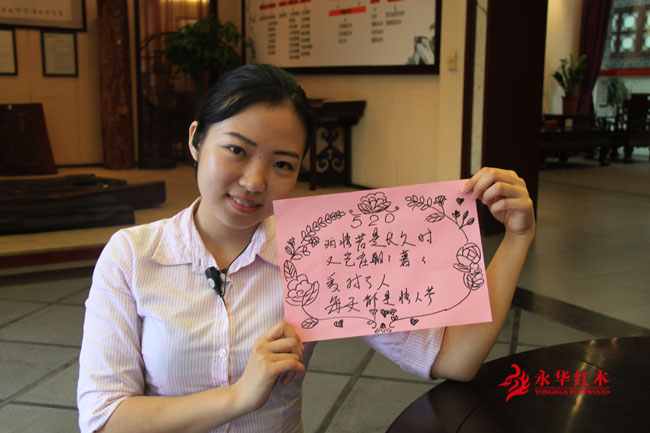 520
两情若是长久时
又岂在朝々暮々
爱对了人
每天都是情人节
永华红木
YONGHUA ROSEWOOD